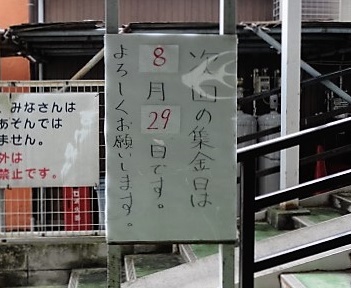 次回の集金日は
8月29日です。
よろしくお願いします。
みなさんは
あそんでは
ません。
外は
禁止です。